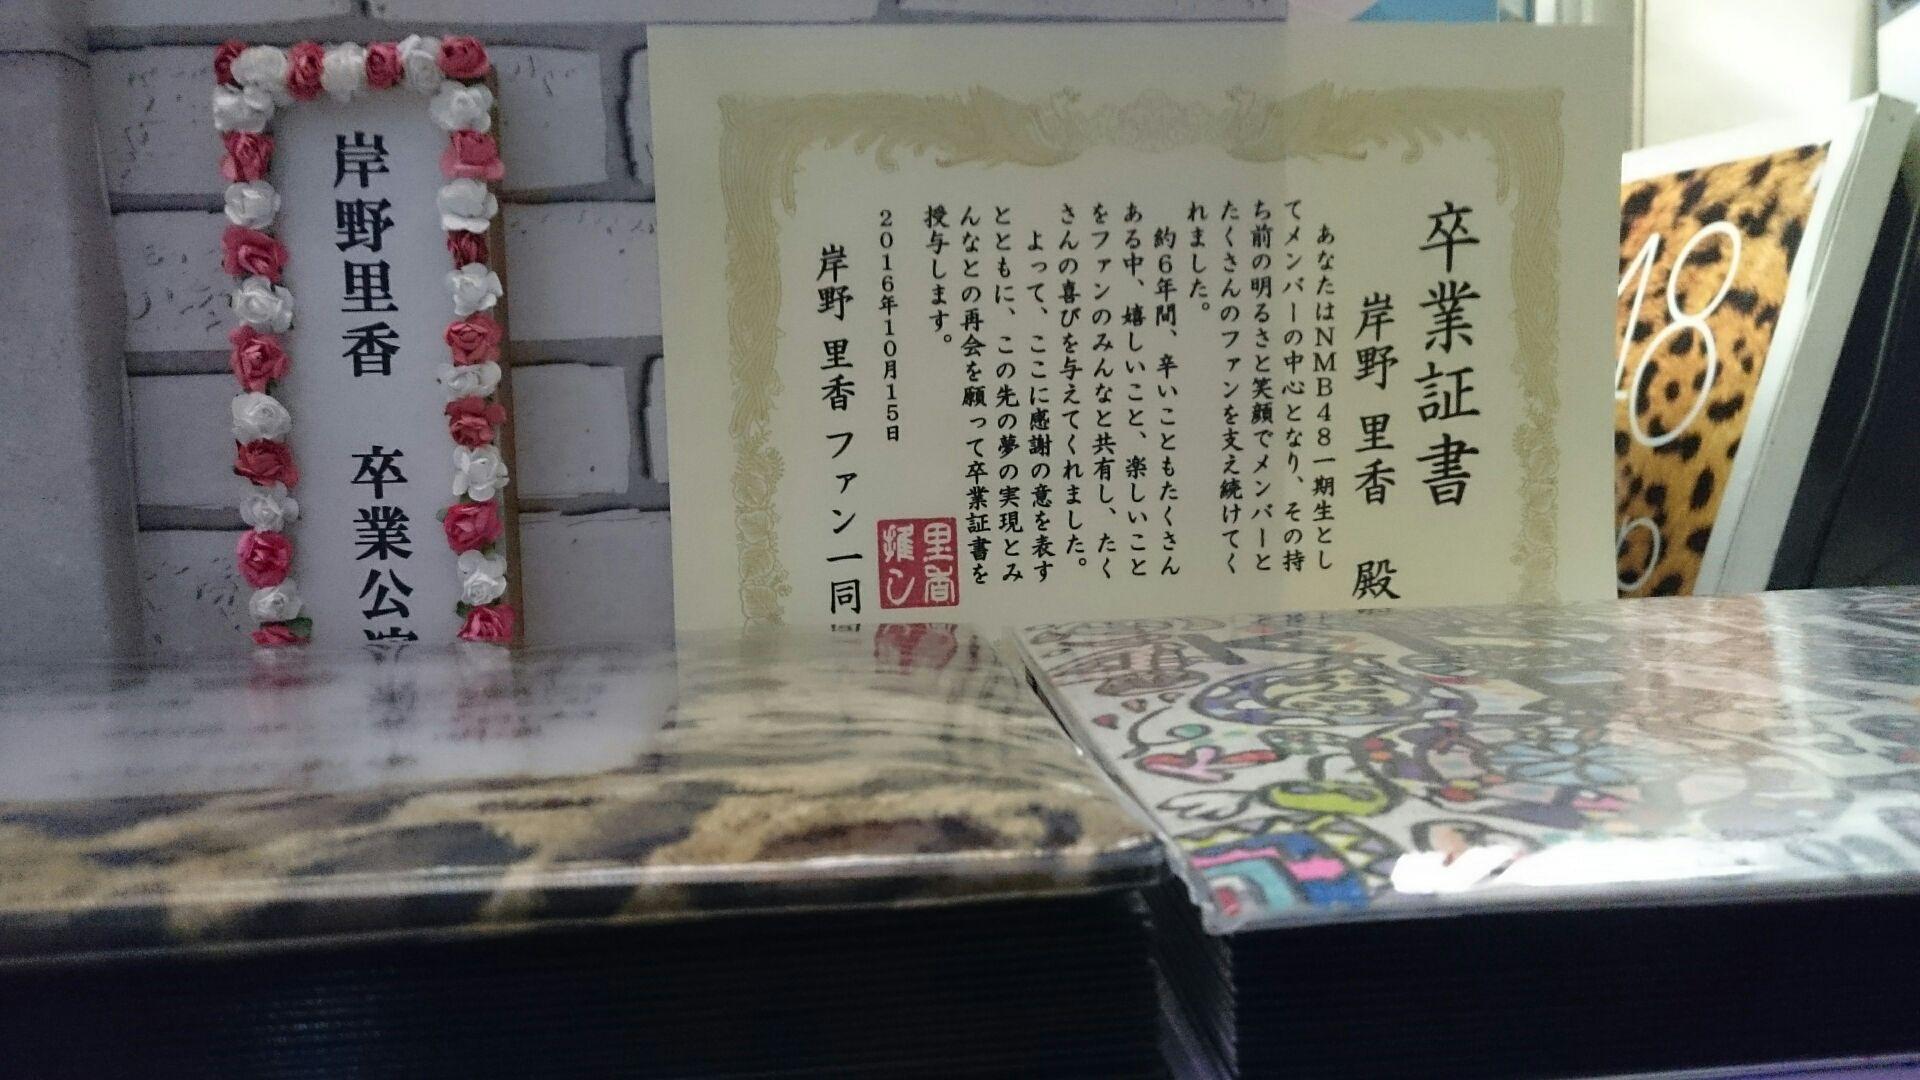 岸野里香 卒業公演
卒業証書
岸野 里香 殿
あなたはNMB48一期生とし
てメンバーの中心となり、その持
ち前の明るさと笑顔でメンバーと
たくさんのファンを支え続けてく
れました。
約6年間、辛いこともたくさん
ある中、嬉しいこと、楽しいこと
をファンのみんなと共有し、たく
さんの喜びを与えてくれました。
よって、ここに感謝の意を表す
とともに、この先の夢の実現とみ
んなとの再会を願って卒業証書を
授与します。
2016年10月15日
岸野 里香 ファン一同
里香
推し
48